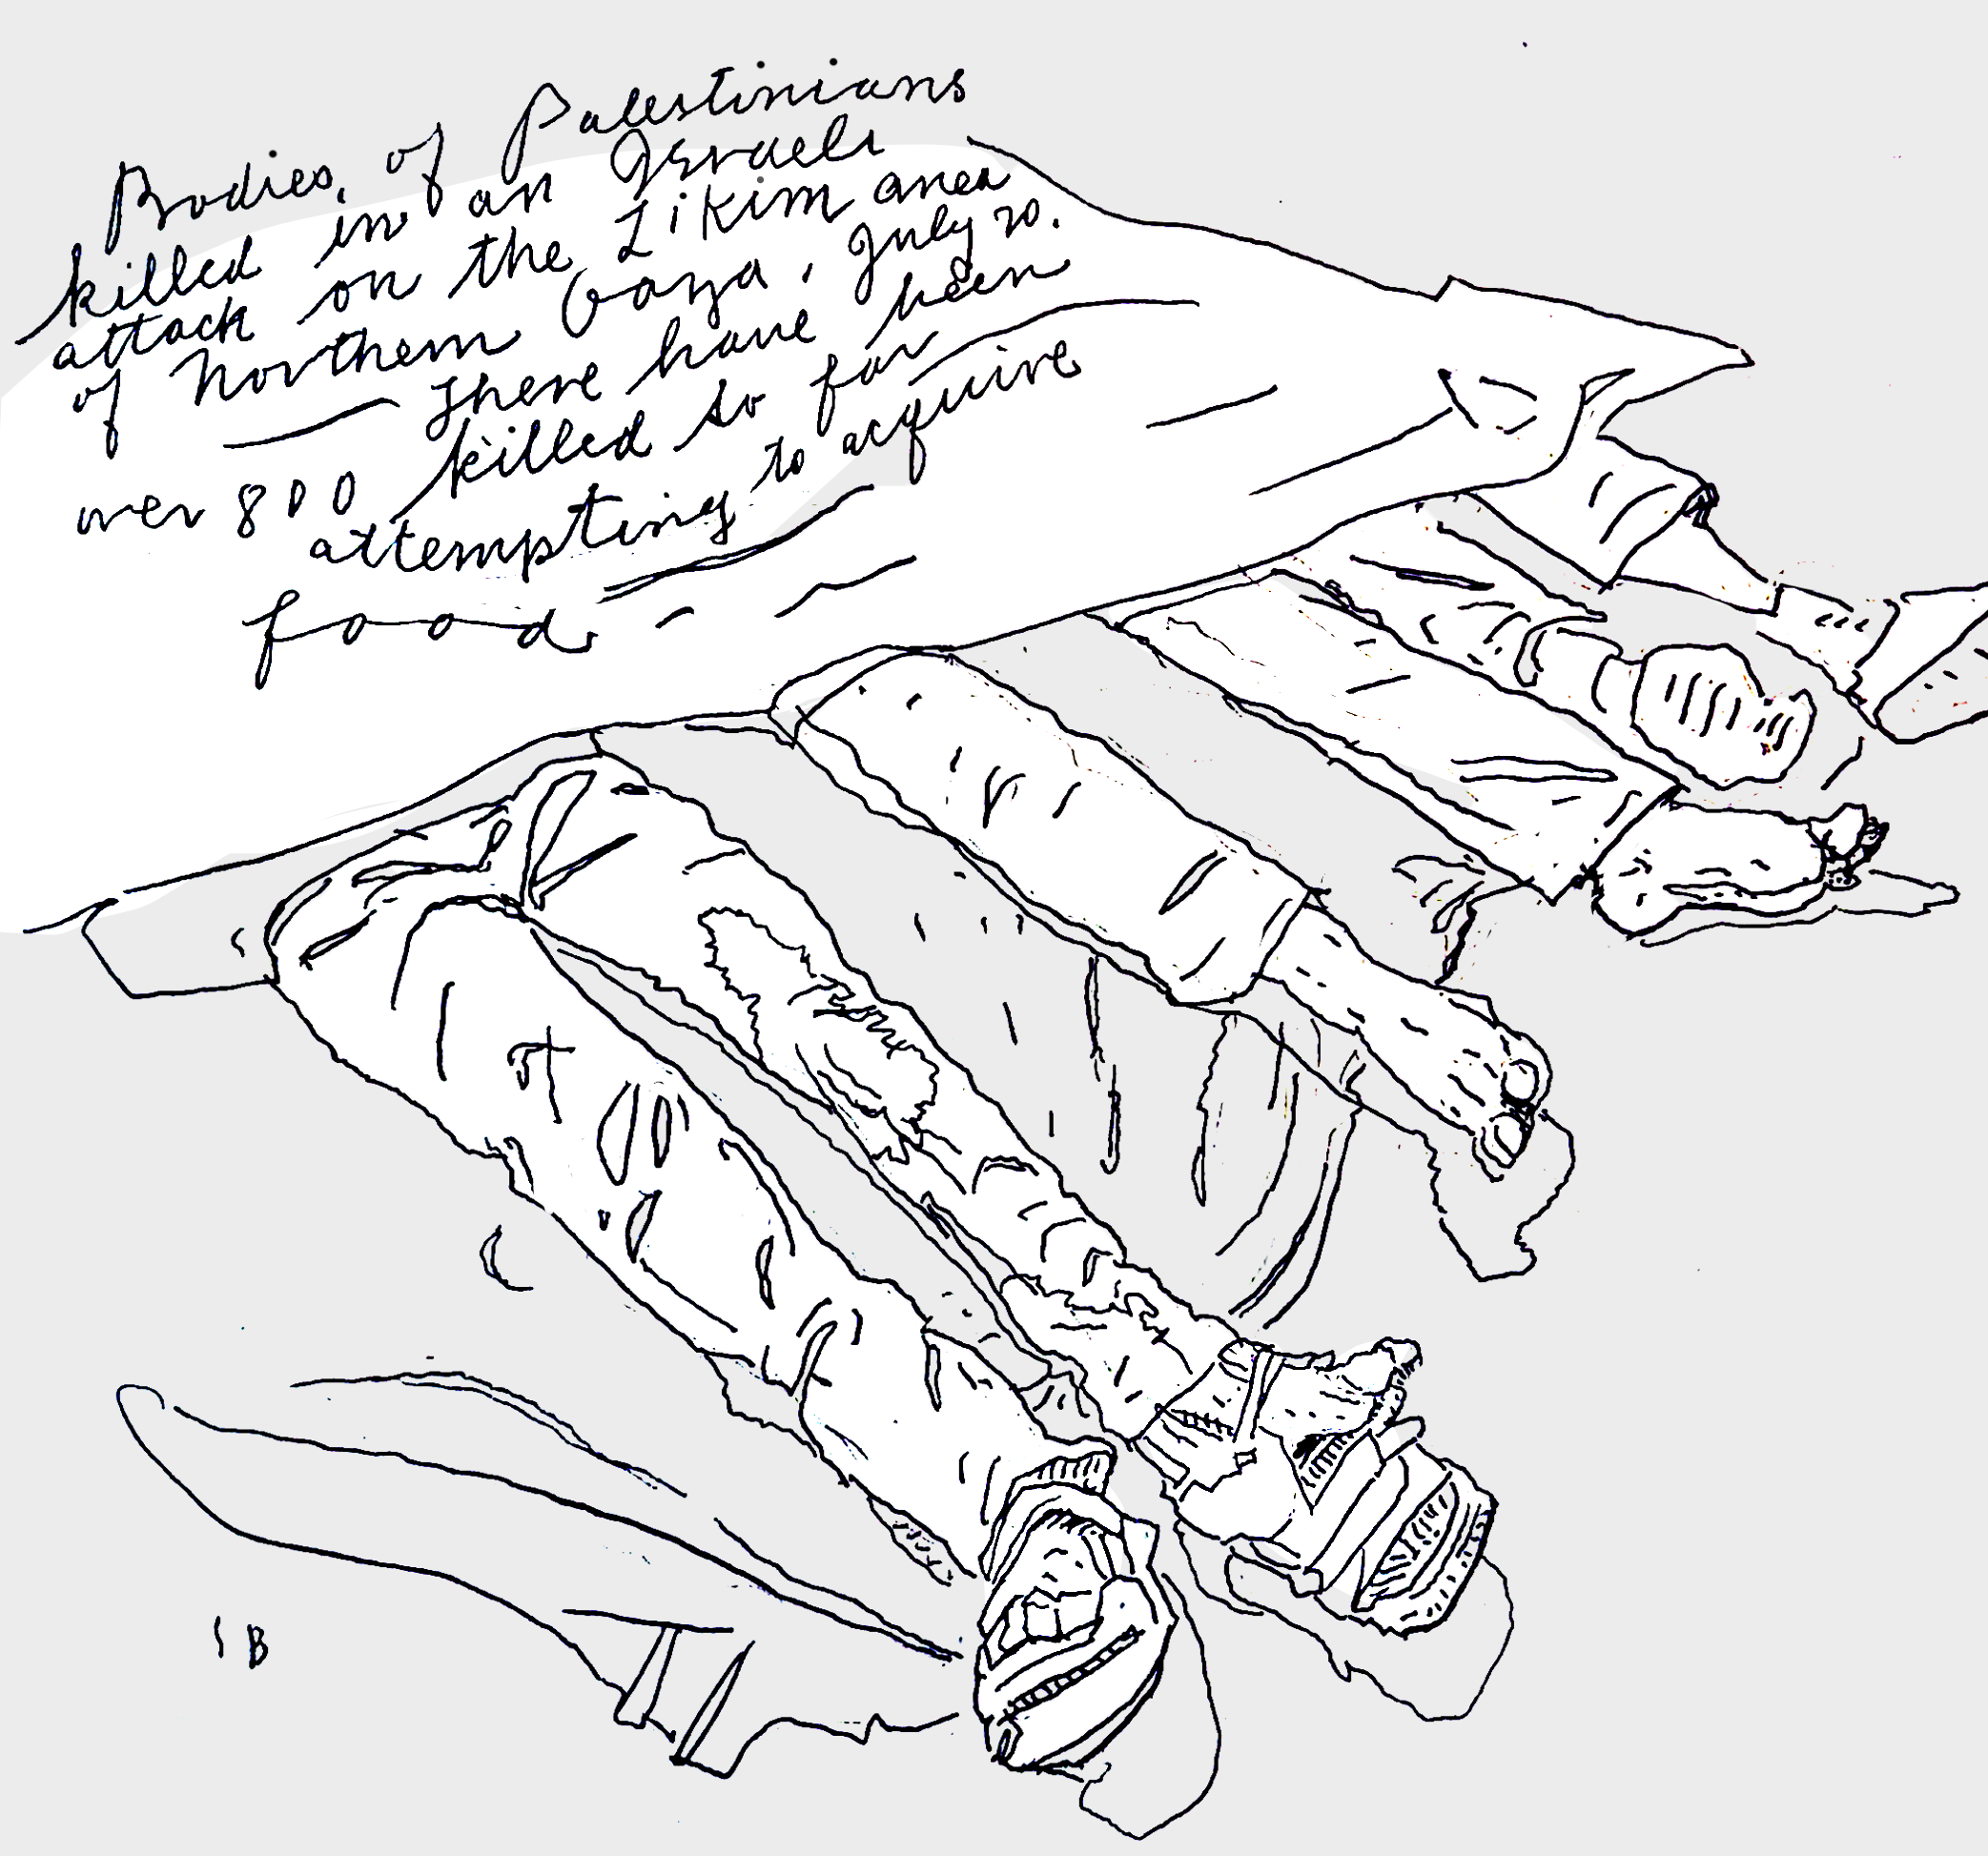 Bodies, of Palestinians
killed in an Israeli
attack on the Zikim area
of Northern Gaza, July 20.
There have been
over 800 killed so far
attempting to acquire
food